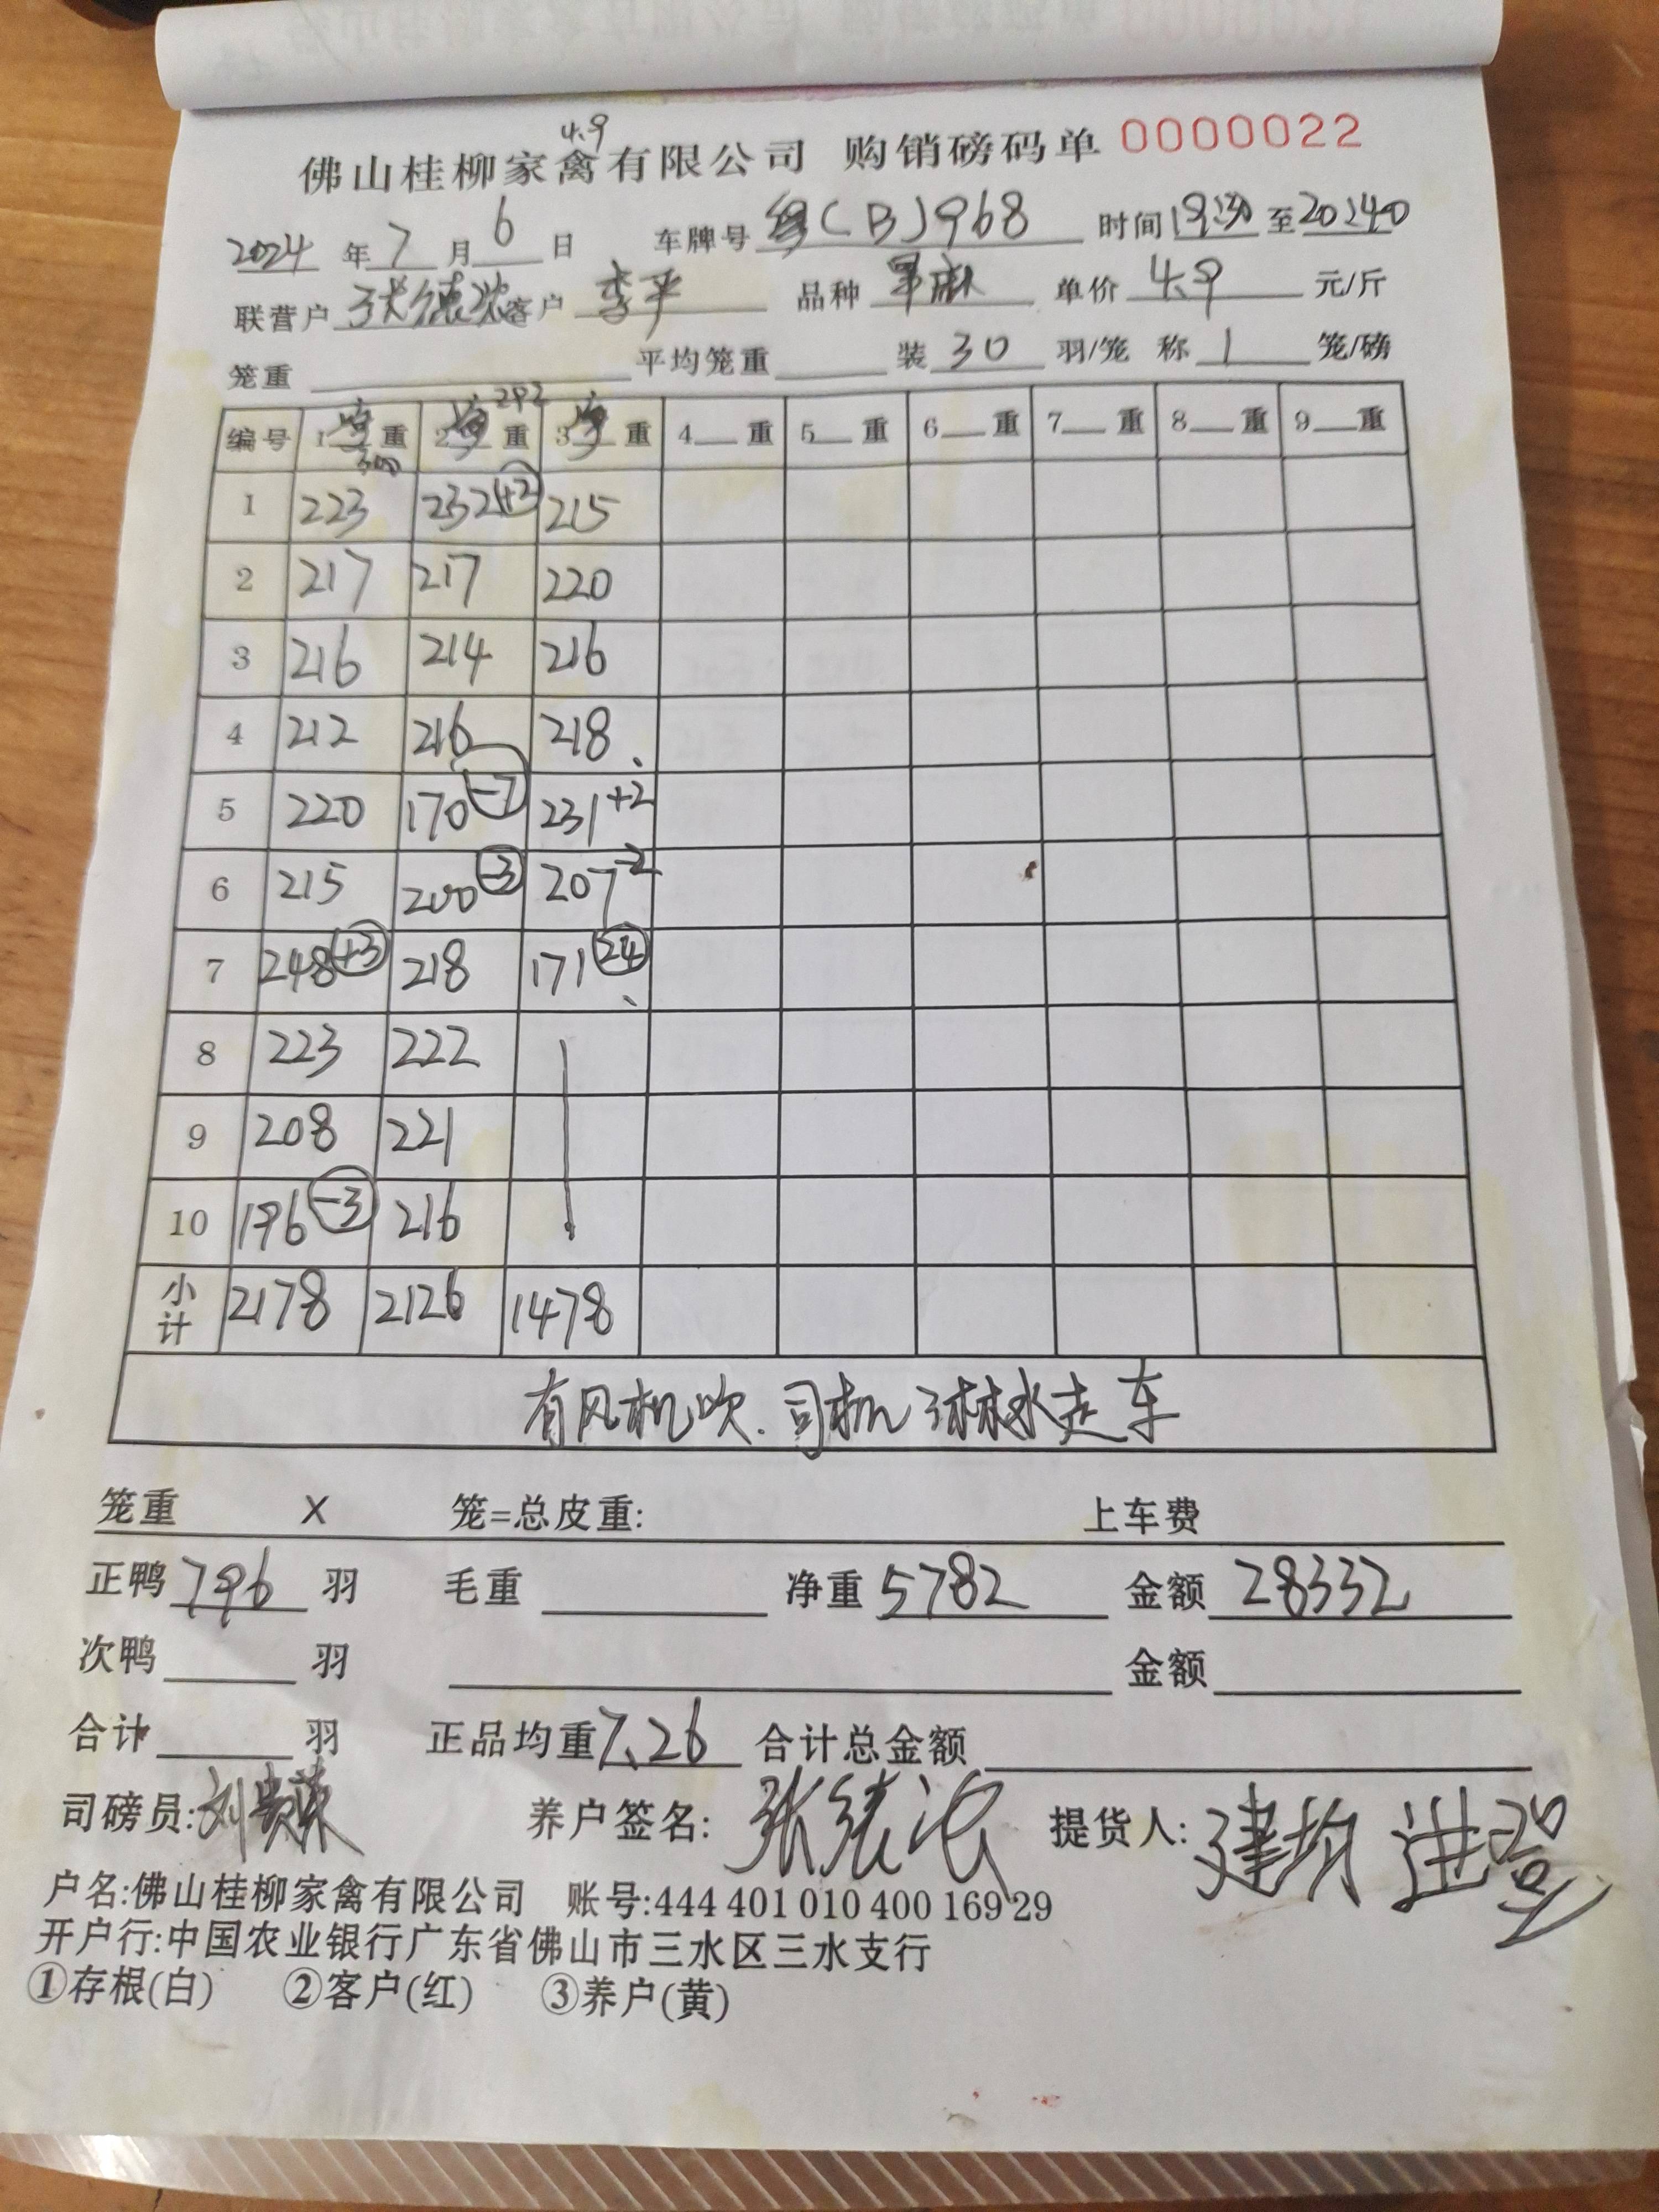 4.9
佛山桂柳家禽有限公司 购销磅码单 0000022
2024 年 7 月 6 日 车牌号 (B)968 时间 19:30 至 20:40
联营户 张德 客户 李平 品种 单价 4.9 元/斤
笼重 平均笼重 装 30 羽/笼 称 1 笼/磅
292
编号 1 重 2 重 3 重 4 重 5 重 6 重 7 重 8 重 9 重
300
1 223 232 +2 215
2 217 217 220
3 216 214 216
4 212 216 218
5 220 170 -7 231 +2
6 215 200 -3 207 -2
7 248 +3 218 171 24
8 223 222
9 208 221
10 196 -3 216
小计 2178 2126 1478
有风机吹.司机淋水走车
笼重 X 笼=总皮重: 上车费
正鸭 796 羽 毛重 净重 5782 金额 28332
次鸭 羽 金额
合计 羽 正品均重 7.26 合计总金额
司磅员: 刘 养户签名: 张 提货人: 建
户名:佛山桂柳家禽有限公司 账号:444 401 010 400 16929
开户行:中国农业银行广东省佛山市三水区三水支行
①存根(白) ②客户(红) ③养户(黄)